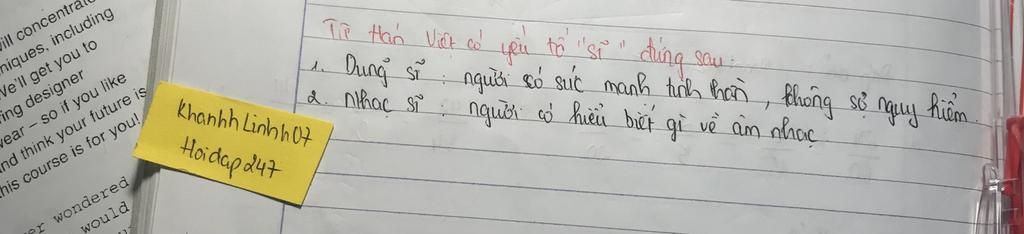 will concentrate
niques, including
we'll get you to
ing designer
year – so if you like
nd think your future is
his course is for you!
er wondered
would
Từ Hán Việt có yếu tố "sĩ" đứng sau:
1. Dung sĩ : người có sức mạnh tinh thần, không sợ nguy hiểm.
2. Nhạc sĩ : người có hiểu biết gì về âm nhạc
KhanhhLinhh07
Hoidap247